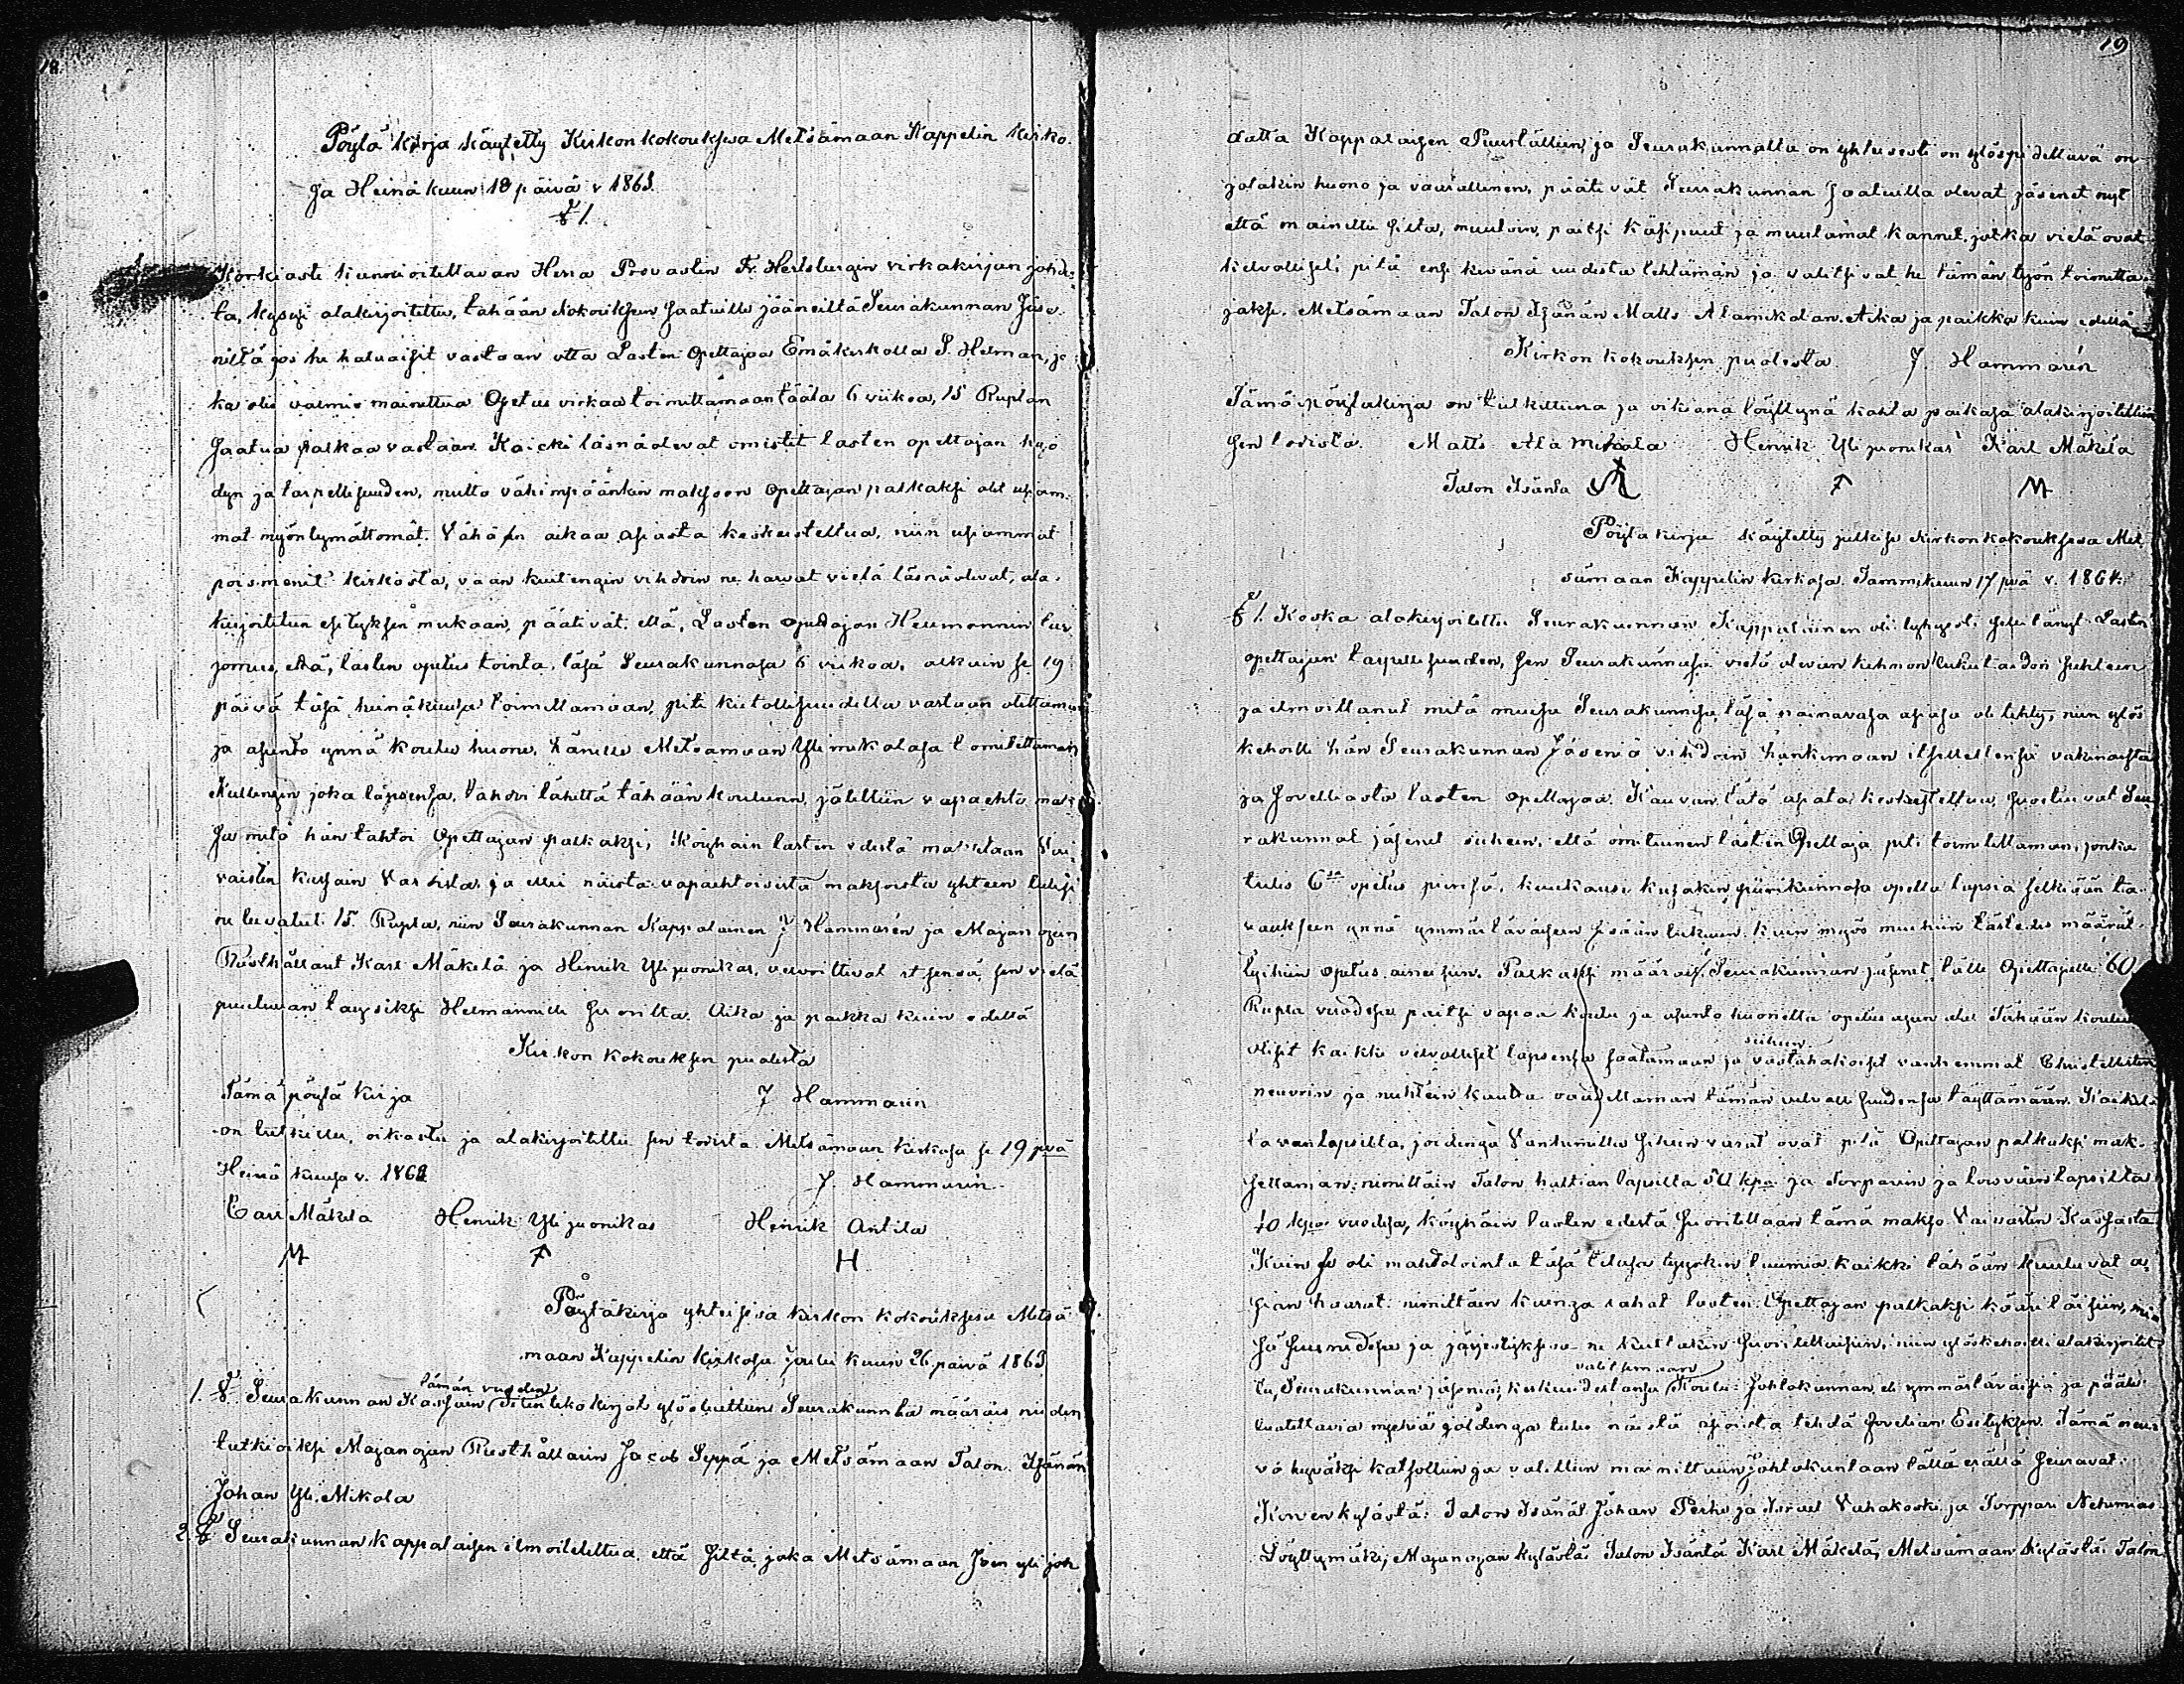 18.
Pöytä kirja käytetty Kirkon kokouksesa Metsämaan Kappelin kirko.
sa Heinäkuun 18 päivä v 1863.
§ 1.
Korkiasti kunnioitettavan Herra Provastin Fr. Hertsbergin virkakirjan johdos
ta, kysyi alakirjoitettu, tähään kokouksen saatuilla jääneiltä Seurakunnan Jäse
niltä jos he haluaisit vastaan otta Lasten Opettajaa Emäkirkolla S. Helman, jo
ka olis valmis mainittua Opetus virkaa toimittamaan tääla 6 viikoa, 15 Ruplan
saatua palkaa vastaan. Kaicki läsnäolevat omistit lasten opettajan hyö
dyn ja tarpellisuuden, mutta vähimpäänkin maksoon Opettajan palkaksi olit usiam
mat myöntymättömät. Vähän aikaa asiasta keskusteltua, niin usiammat
poismenit kirkosta, vaan kuitengin vihdoin ne harvat vielä läsnäolevat, ala.
kirjoitetun esityksen mukaan, päätivät, että, Lasten Opettajan Helmannin tar
jomus, että, lasten opetus tointa, täsä Seurakunnasa 6 viikoa, alkain se 19
päivä täsä heinäkuusa toimittamaan, piti kiitollisuudella vastaan otettaman
ja asunto ynnä koulu huone, hänelle Metsämaan Yli mikolasa toimitettaman
Kullengin joka lapsensa, tahtoi lähettä tähään kouluun, jätettiin vapaehto mak
sa mitä hän tahtoi Opettajan palkaksi, Köyhäin lasten edestä maksetaan Vai
vaisten kassain Varoista, ja ellei näistä vapaehtoisista maksoista yhteen tulisi
ne luvatut 15. Rupla, niin Seurakunnan Kappalainen J Hammarén ja Majanojan
Rusthållarit Karl Mäkelä ja Henrik Yli juonikas, veivoittivat itsensä, sen vielä
puutuvan täysiksi Helmannille suorittaa. Aika ja paikka kuin edellä
Kirkon kokouksen puolesta
Tämä pöytä kirja J Hammarén
on tutkittu, oikastu ja alakirjoitettu sen tovista Metsämaan kirkosa se 19 pvä
Heinä kuusa v. 1863 J. Hammarén
Carl Mäkela Henrik Yli juonikas Henrik Antila
M F H
Pöytäkirja yhteisesä kirkon kokouksesa Metsä
maan Kappelin kirkosa Joulu kuun 26 päivä 1863
tämän vuoden
1. § Seurakunnan Kassain Tilinteko kirjat ylösluettuine Seurakunnta määräis niiden
tutkioiksi Majanojan Rusthållarin Jacob Seppä ja Metsämaan Talon Isänän
Johan Yli Mikola
2. § Seurakunnan kappalaisen ilmoitettua että Siltä joka Metsämaan Joen yli joh
19
datta Kappalaisen Puuställiin ja Seurakunnalta on yhteisesti on ylöspidettävä on
jotakin huono ja vaarallinen, päätivät Seurakunnan saatuilla olevat jäsenet nyt
että mainittu silta, muutoin, paitsi käsipuut ja muutamat kannet, jotka vielä ovat
kelvolliset, pitä ensi kevänä uudista tehtämän ja valitsivat he tämän työn toimitta
jaksi. Metsämaan Talon Isänän Matts Alamikolan. Aika ja paikka kuin edellä
Kirkon kokouksen puolesta J. Hammarén
Tämä pöytäkirja on tutkittuna ja oikiana löyttynä kahta paikasa alakirjoitettiin
sen todista. Matts Ala Mikola Henrik Yli juonikas Karl Mäkelä
Talon Isäntä F M
Pöytäkirja käytetty julkise kirkonkokouksesa Met
sämaan Kappelin kirkosa Tammikuun 17 pvä v. 1864.
§ 1. Koska alakirjoitettu Seurakunnan Kappalainen oli lyhyesti selittänyt Lasten
opettajan tarpellisuuden, sen Seurakunnasa vielä olevan kehnon lukutaidon suhteen
ja ilmoittanut mitä muisa Seurakunnisa täsä painavasa asiasa oli tehty, niin ylös
kehoitti hän Seurakunnan Jäseniä vihdoin hankimaan itsellensä vakinaista
ja sovelliasta lasten opettajaa. Kauvan tätä asiata keskusteltua, suostuivat Seu
rakunnat jäsenet siihen, että omituinen lasten Opettaja piti toimitettaman, jonka
tulis 6:sa opetus piirisä, kuukausi kusakin piirikunnasa opetta lapsia selkiään ta
vaukseen ynnä ymmärtäväisen sisään lukuun. kuin myös muihin tästedes määrät
tyihin opetus aineisiin. Palkaksi määräsi Seurakunnan jäsenet tälle Opettajalle 60
Rupla vuodesa paitsi vapaa koulu ja asunto huonetta opetus ajan alla. Tähään kouluun
siihen
olisit kaikki velvolliset lapsensa saatamaan ja vastahakoiset vanhemmat Christillisten
neuvoin ja nuhtein kautta vaaditaman tämän velvollisuudensa täyttämään. Kaikilta
tavanlapsilta, joidenga Vanhemilla siihen varat ovat pitä Opettajan palkaksi mak
settaman: nimittäin Talon haltian lapsilta 50 kpa ja Torparin ja loisväen lapsilta
40 kpa vuodesa, köyhäin lasten edestä suoritettaan tämä makso Vaivasten Kassasta
Kuin se oli mahdotointa täsä tilasa tyysikin tuumia kaikki tähään kuuluvat a
sian haarat: nimittäin kuinga rahat lasten Opettajan palkaksi kääntäisiin, mi
sä suurudesa ja järjestyksesä ne kultakin suoritettaisiin, niin ylöskehoitti alakirjoitet
valitsemaan
tu, Seurakunnan jäseniä, keskuudestansa Koulu: Johtokunnan, eli ymmärtäväisiä ja pääte
luotettavia myehiä joidenga tulis näistä asioista tehdä sovelian Esityksen. Tämä neu
vo hyväksi katsottiin ja valittiin mainittuun Johtokuntaan tällä erällä seuravat:
Korvenkylästä: Talon Isänät Johan Perho ja Israel Vahakoski ja Torppari Nehemias
Löyttymäki, Majanojan kylästä: Talon Isäntä Karl Mäkelä, Metsämaan kylästä: Talon